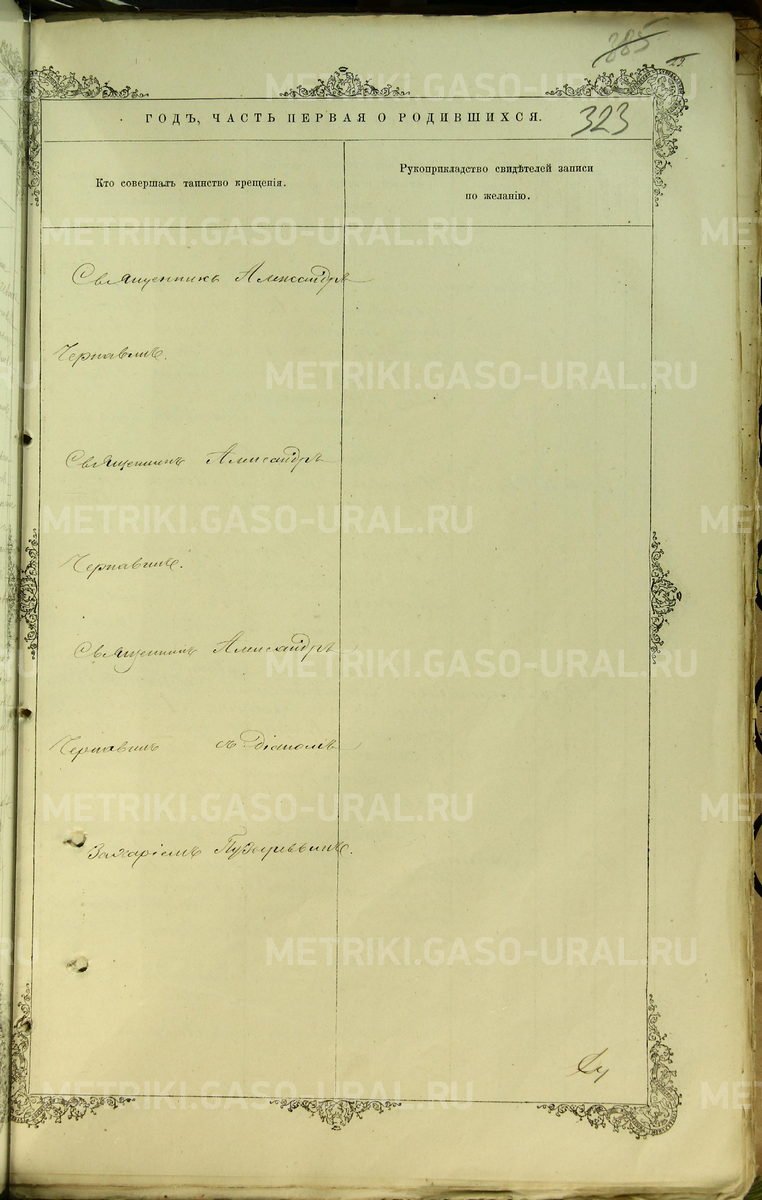 385
323
ГОДЪ, ЧАСТЬ ПЕРВАЯ О РОДИВШИХСЯ.
Кто совершалъ таинство крещенія.
Рукоприкладство свидѣтелей записи
по желанію.
Священникъ Александръ
Чернавинъ.
Священникъ Александръ
Чернавинъ.
Священникъ Александръ
Чернавинъ съ Діакономъ
Захаріемъ
METRIKI.GASO-URAL.RU
METRIKI.GASO-URAL.RU
METRIKI.GASO-URAL.RU
METRIKI.GASO-URAL.RU
METRIKI.GASO-URAL.RU
METRIKI.GASO-URAL.RU
METRIKI.GASO-URAL.RU
METRIKI.GASO-URAL.RU